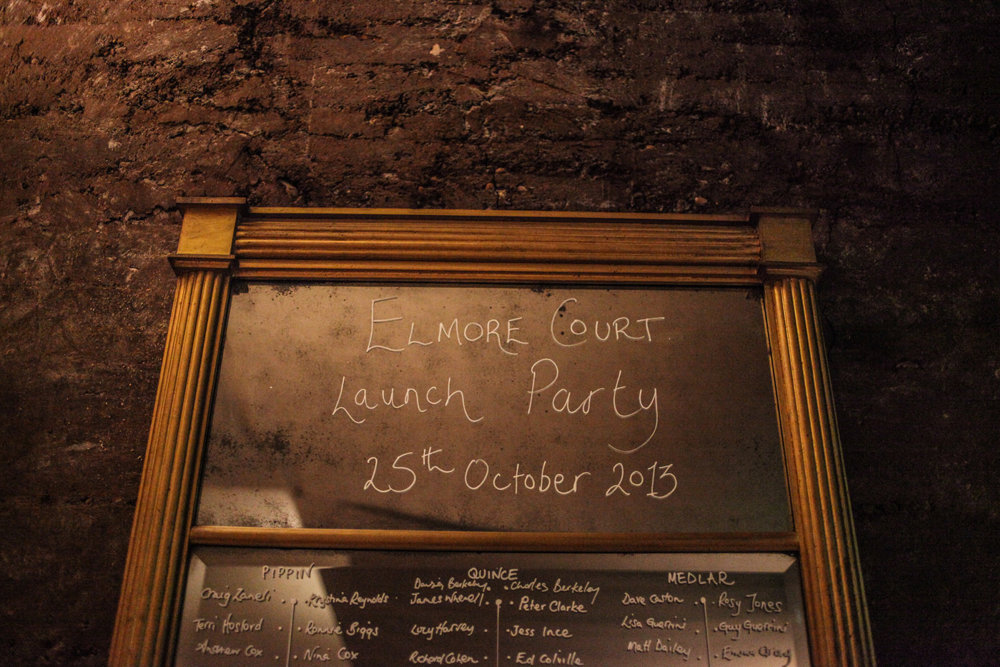 ELMORE COURT
Launch Party
25th October 2013
PIPPIN
Craig Zaneli
Kristina Reynolds
Terri Hosford
Ronnie Biggs
Andrew Cox
Nina Cox
QUINCE
Berkeley
Charles Berkeley
James
Peter Clarke
Lucy Harvey
Jess Ince
Richard Cohen
Ed Colville
MEDLAR
Dave Caston
Rosy Jones
Lisa Guerrini
Guy Guerrini
Matt Dailey
Emma